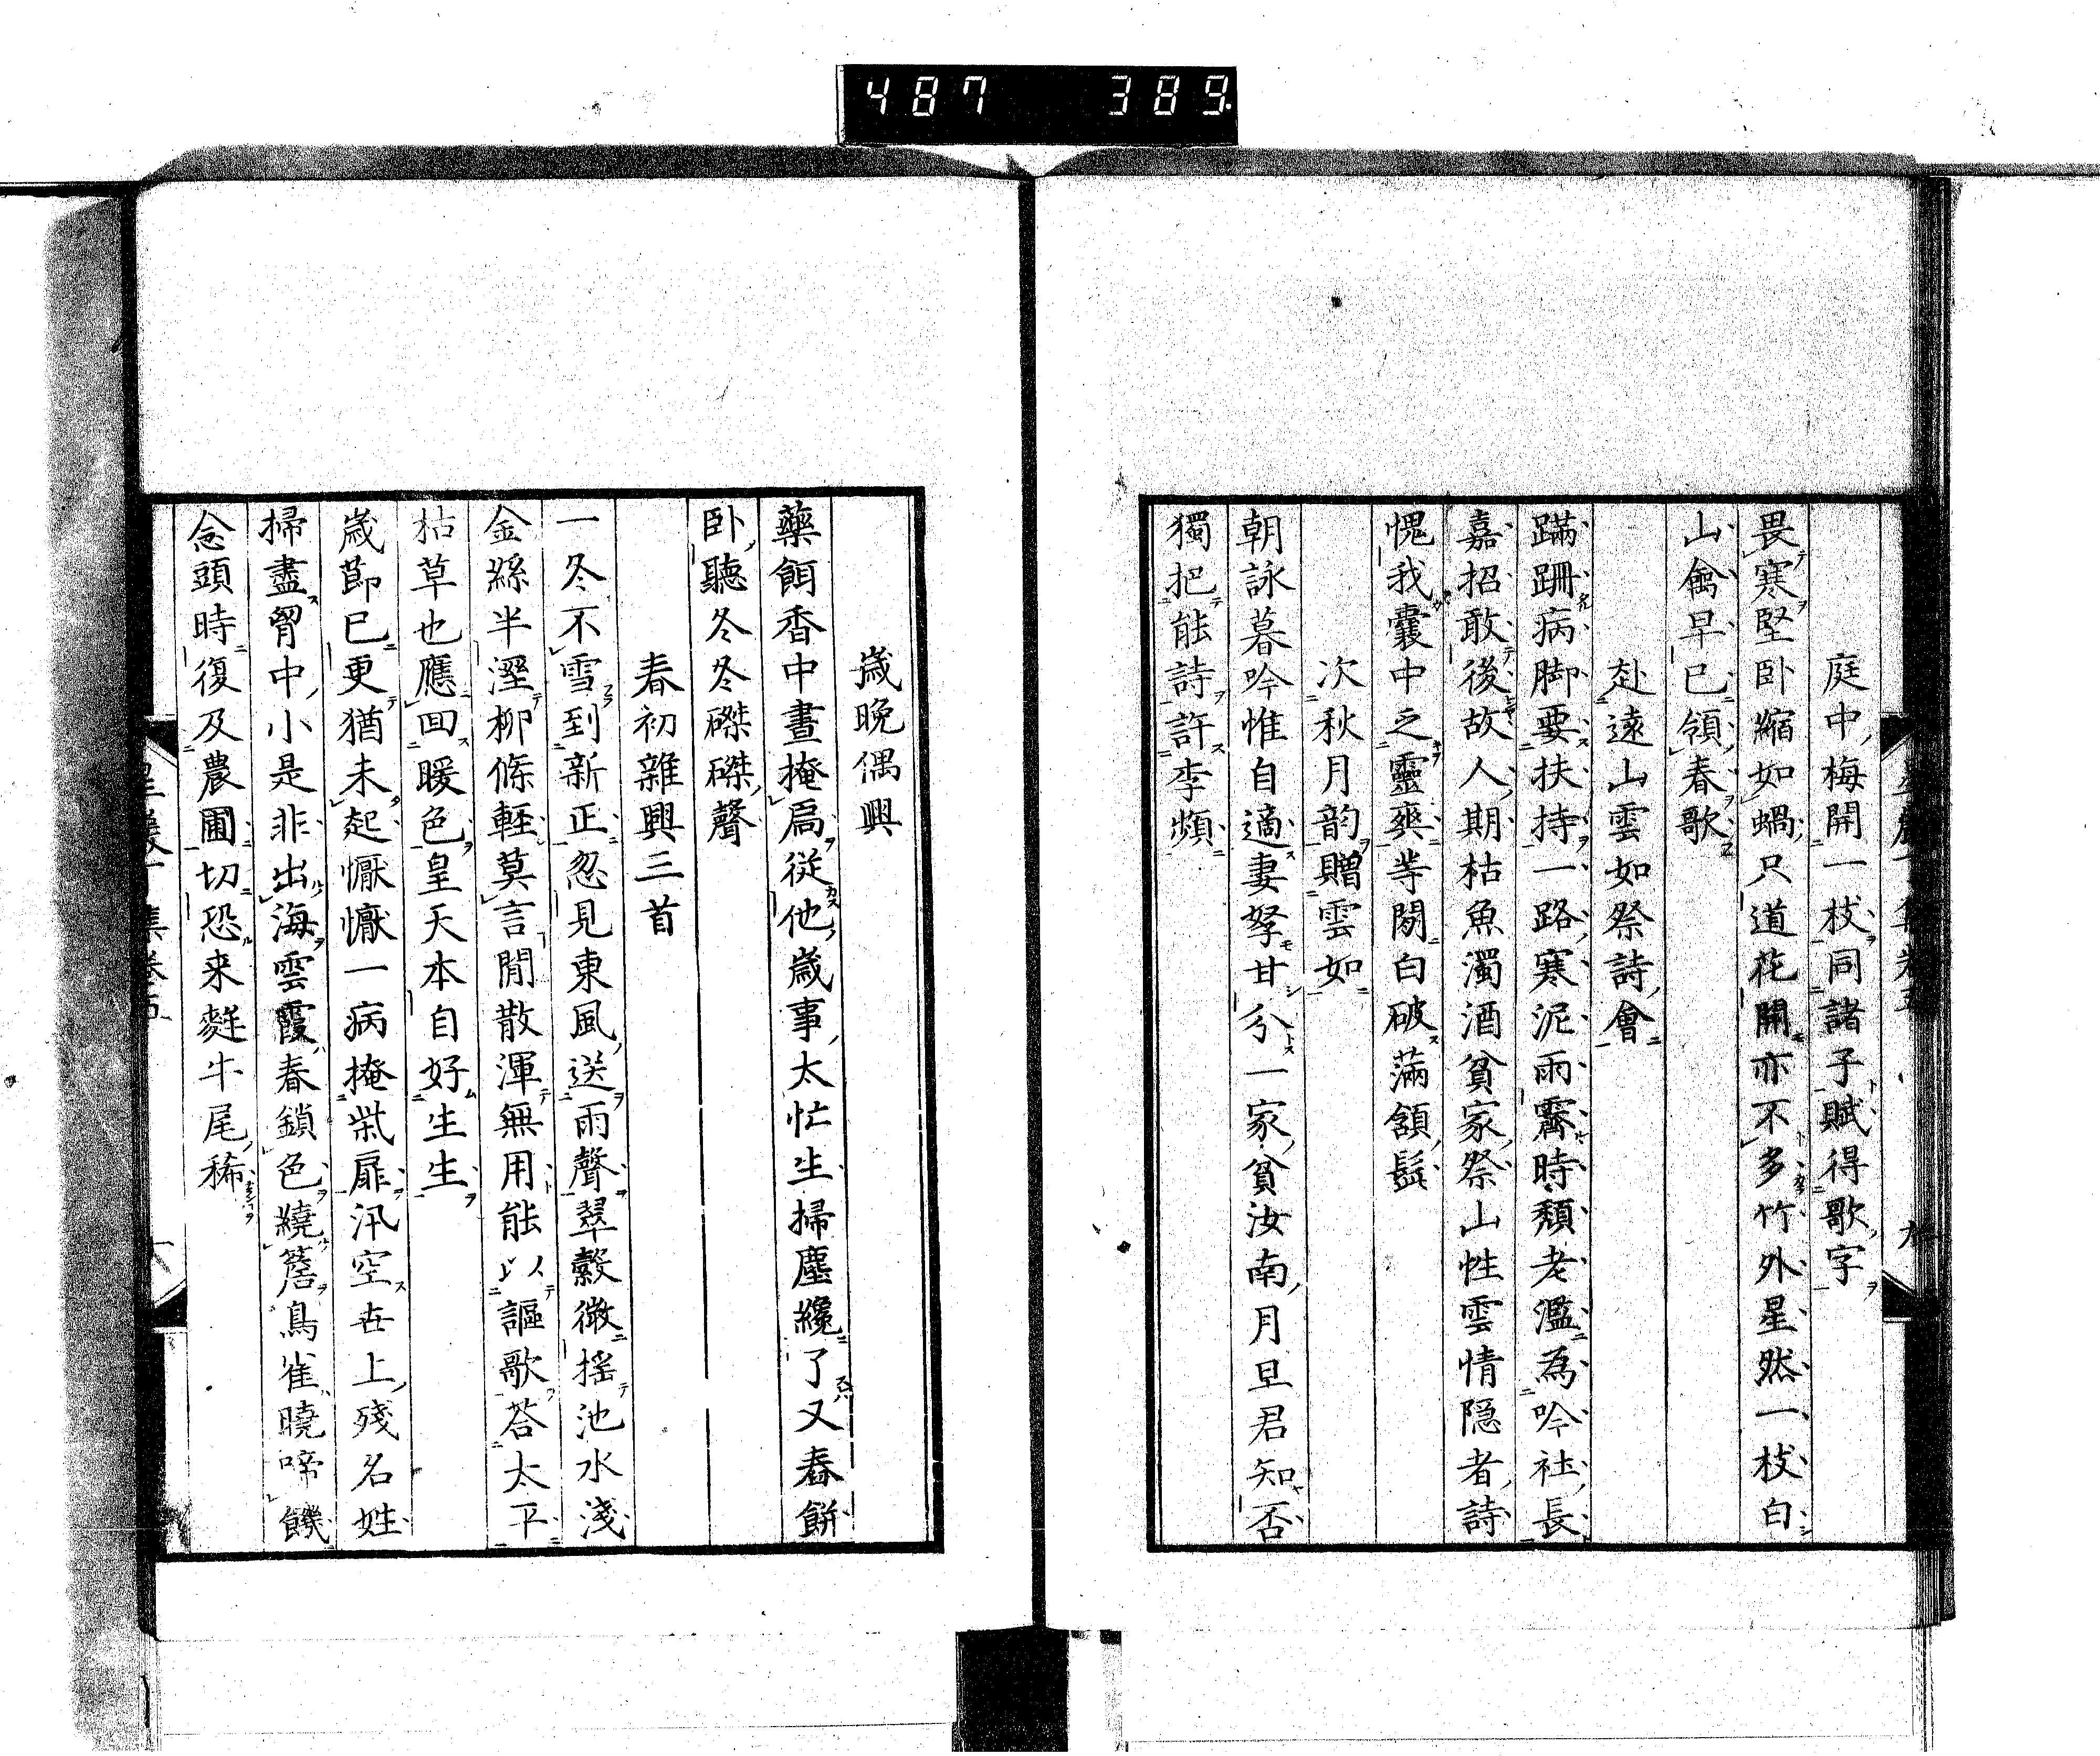 487 389
庭中梅開一枝同諸子賦得歌字
畏寒堅臥縮如蝸只道花開亦不多竹外星然一枝白
山禽早已領春歌
赴遠山雲如祭詩會
蹣跚病脚要扶持一路寒泥雨霽時頽老濫為吟社長
嘉招敢後故人期枯魚濁酒貧家祭山性雲情隱者詩
愧我囊中乏靈藥等閑白破滿頷髭
次秋月韵贈雲如
朝詠暮吟惟自適妻孥甘分一家貧汝南月旦君知否
獨把能詩許李頻
歲晚偶興
藥餌香中晝掩扃從他歲事太忙生掃塵纔了又舂餅
臥聽冬冬磔磔聲
春初雜興三首
一冬不雪到新正忽見東風送雨聲翠縠微搖池水淺
金絲半溼柳條輕莫言閒散渾無用能以謳歌答太平
枯草也應回暖色皇天本自好生生
歲節已更猶未起懨懨一病掩柴扉汛空世上殘名姓
掃盡胷中小是非出海雲霞春鎖色繞簷鳥雀曉啼饑
念頭時復及農圃切恐來麰牛尾稀